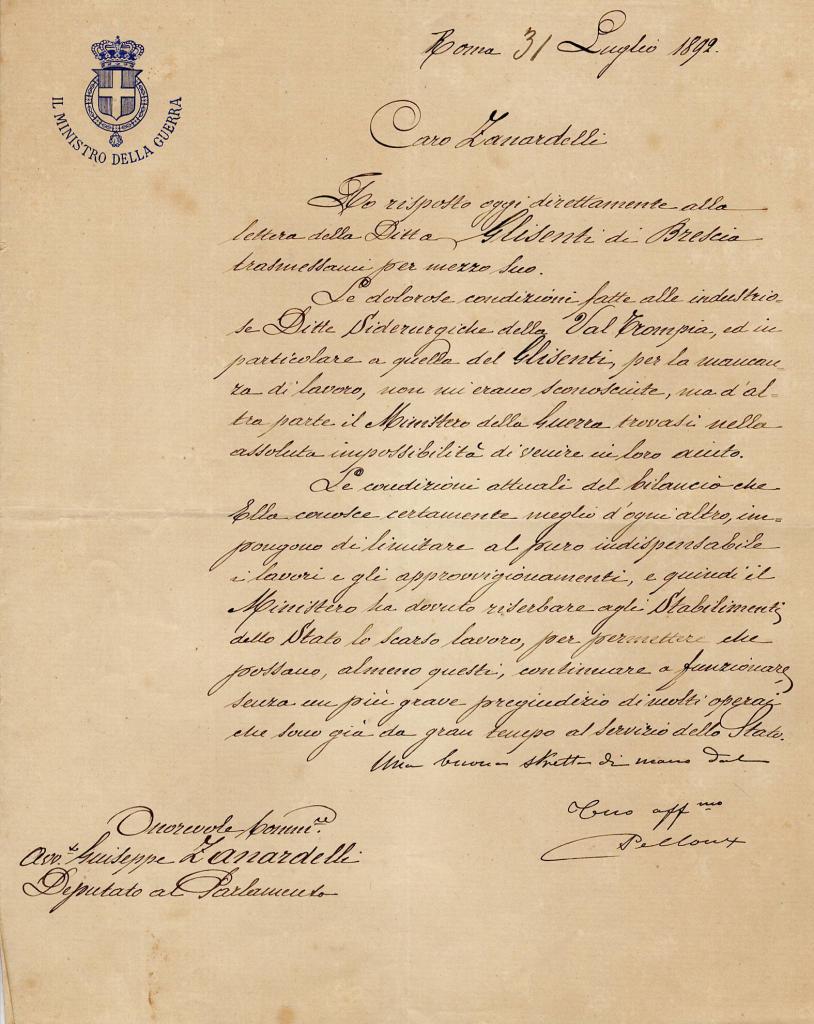 Roma 31 Luglio 1892.
IL MINISTRO DELLA GUERRA
Caro Zanardelli
Ho risposto oggi direttamente alla
lettera della Ditta Glisenti di Brescia
trasmessami per mezzo suo.
Le dolorose condizioni fatte alle industrio-
se Ditte Siderurgiche della Val Trompia, ed in
particolare a quella del Glisenti, per la mancan-
za di lavoro, non mi erano sconosciute, ma d'al-
tra parte il Ministero della Guerra trovasi nella
assoluta impossibilità di venire in loro aiuto.
Le condizioni attuali del bilancio che
Ella conosce certamente meglio d'ogni altro, im-
pongono di limitare al puro indispensabile
i lavori e gli approvvigionamenti, e quindi il
Ministero ha dovuto riserbare agli Stabilimenti
dello Stato lo scarso lavoro, per permettere che
possano, almeno questi, continuare a funzionare,
senza un più grave pregiudizio di molti operai
che sono già da gran tempo al servizio dello Stato.
Una buona stretta di mano dal
Tuo aff mo
Pelloux
Onorevole Comm.re
Avv.to Guiseppe Zanardelli
Deputato al Parlamento